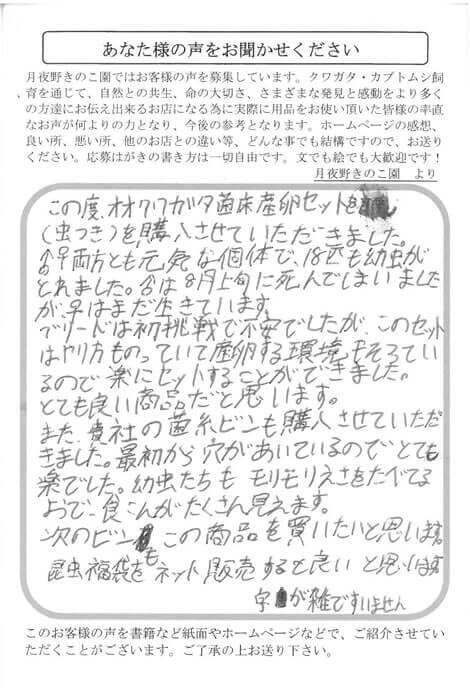 あなた様の声をお聞かせください
月夜野きのこ園ではお客様の声を募集しています。クワガタ・カブトムシ飼
育を通じて、自然との共生、命の大切さ、さまざまな発見と感動をより多く
の方達にお伝え出来るお店になる為に実際に用品をお使い頂いた皆様の率直
なお声が何よりの力となり、今後の参考となります。ホームページの感想、
良い所、悪い所、他のお店との違い等、どんな事でも結構ですので、お送り
ください。応募はがきの書き方は一切自由です。文でも絵でも大歓迎です！
月夜野きのこ園　より
この度、オオクワガタ菌床産卵セットを
(虫つき)を購入させていただきました。
♂♀両方とも元気な個体で、18匹も幼虫が
とれました。♂は8月上旬に死んでしまいました
が、♀はまだ生きています。
ブリードは初挑戦で不安でしたが、このセット
はやり方ものっていて産卵する環境もそろてい
るので楽にセットすることができました。
とても良い商品だと思います。
また、貴社の菌糸ビンも購入させていただ
きました。最初から穴があいているのでとても
楽でした。幼虫たちもモリモリえさをたべてる
ので、食こんがたくさん見えます。
次のビンもこの商品を買いたいと思います。
昆虫福袋をネット販売すると良いと思います。
字が雑ですいません
このお客様の声を書籍など紙面やホームページなどで、ご紹介させてい
ただくことがございます。ご了承の上お送り下さい。